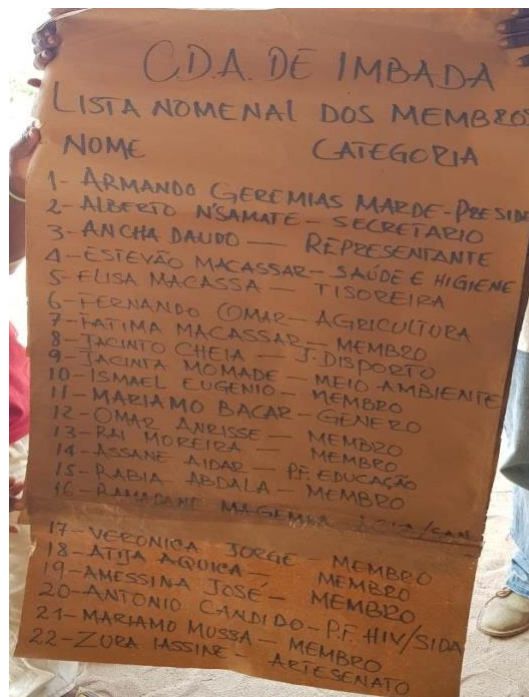 C.D.A. DE IMBADA
LISTA NOMENAL DOS MEMBROS
NOME CATEGORIA
1- ARMANDO GEREMIAS MARDE-PRESID
2- ALBERTO N'SAMATE - SECRETARIO
3- ANCHA DAUDO — REPRESENTANTE
4- ESTEVÃO MACASSAR - SAÚDE E HIGIENE
5- ELISA MACASSA - TISOREIRA
6- FERNANDO OMAR - AGRICULTURA
7- FATIMA MACASSAR - MEMBRO
8- JACINTO CHEIA - J. DISPORTO
9- JACINTA MOMADE - MEIO AMBIENTE
10- ISMAEL EUGENIO - MEMBRO
11- MARIAMO BACAR - GÉNERO
12- OMAR ANRISSE - MEMBRO
13- RAI MOREIRA - MEMBRO
14- ASSANE AIDAR - P.F. EDUCAÇÃO
15- RABIA ABDALA - MEMBRO
16- RAMADANE MAGEMBA
17- VERONICA JORGE - MEMBRO
18- ATIJA AQUICA - MEMBRO
19- AMESSINA JOSÉ - MEMBRO
20- ANTONIO CANDIDO - P.F. HIV/SIDA
21- MARIAMO MUSSA - MEMBRO
22- ZURA IASSINE - ARTESENATO